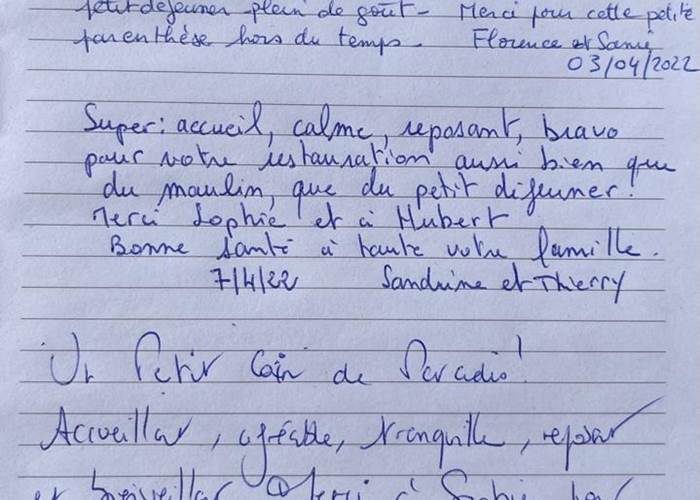 petit déjeuner plein de goût - Merci pour cette petite
parenthèse hors du temps - Florence et Samï
03/04/2022
Super : accueil, calme, reposant, bravo
pour votre restauration aussi bien que
du moulin, que du petit dijeuner !
Merci Sophie et à Hubert
Bonne santé à toute votre famille.
7/4/22 Sandrine et Thierry
Un Petit Coin de Paradis !
Accueillant, agréable, tranquille, reposant
et bienveillant Merci à Sophie